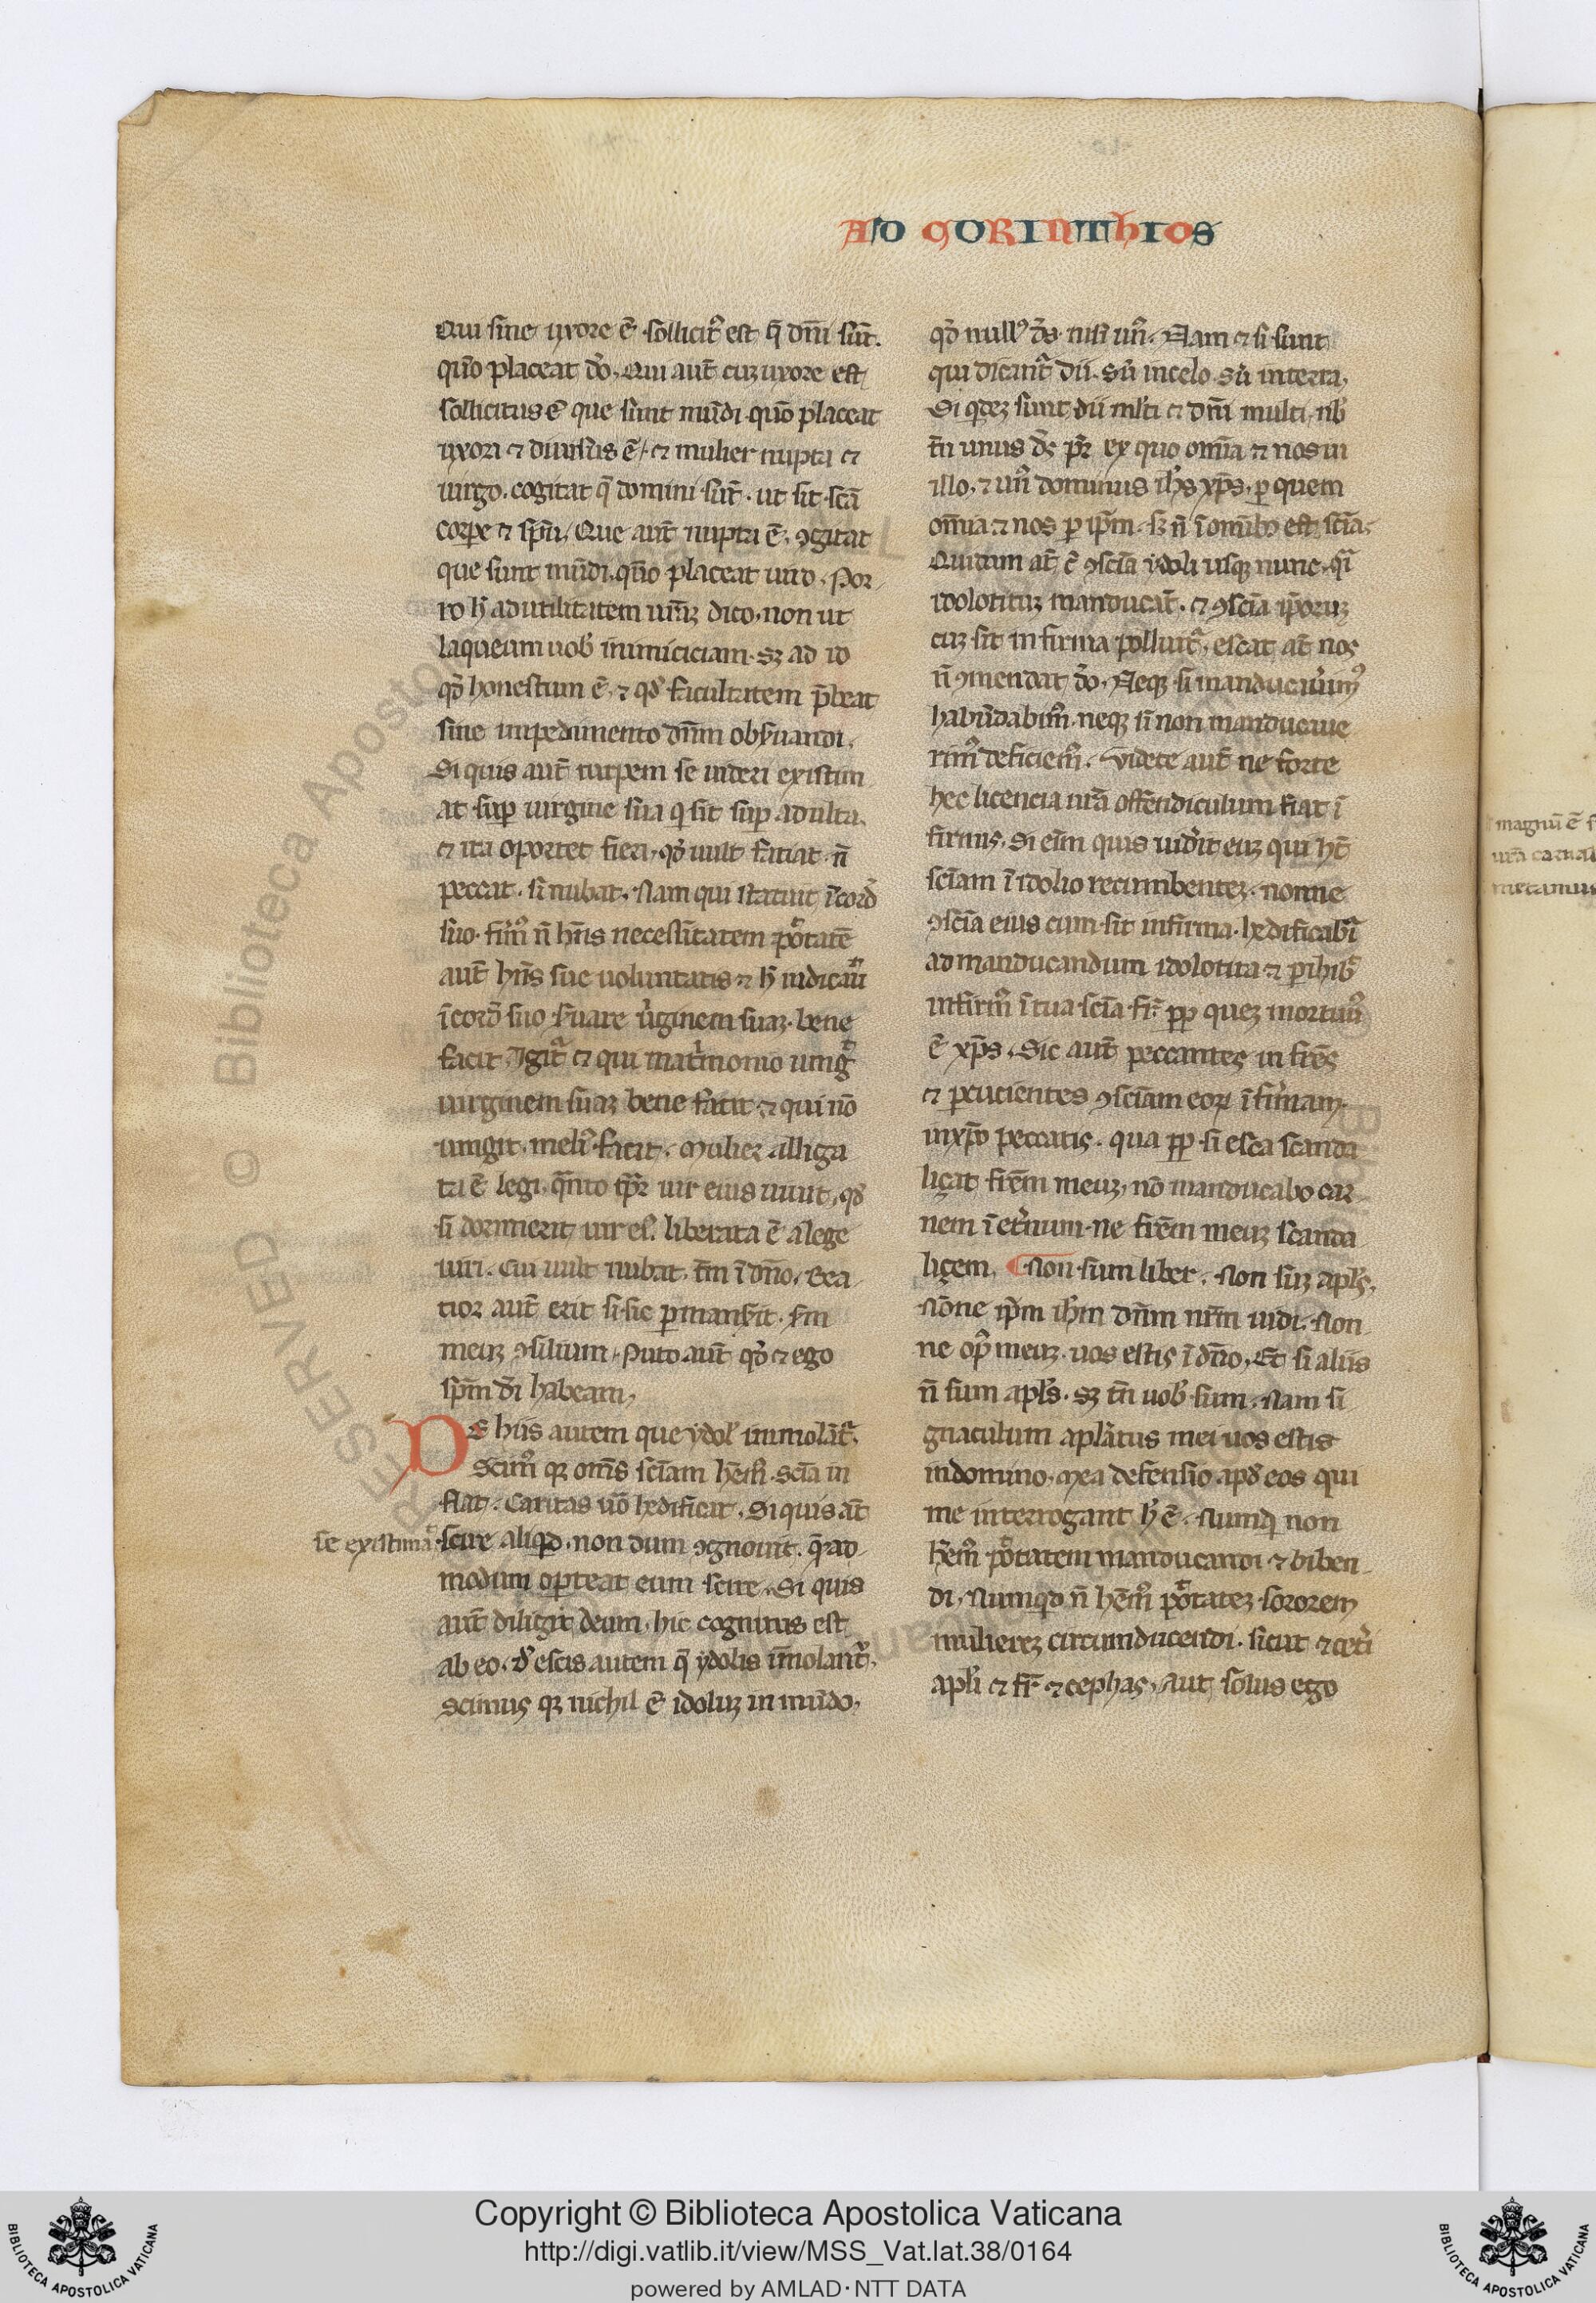 AD CORINTHIOS
Qui sine uxore ē sollicit᷒ est q̄ dn̄i sūt.
quō placeat dō. Qui aut̄ cuz uxore est
sollicitus ē que sunt mūdi quō placeat
uxori ⁊ diuisus ē. ⁊ mulier nupta ⁊
uirgo. cogitat q̄ domini sūt. ut sit scā
corpe ⁊ sp̄u. Que aut̄ nupta ē. ꝯgitat
que sunt mūdi. quō placeat uiro. Por
ro h̄ ad utilitatem ur̄az dico. non ut
laqueum uob̄ iniiciam. sz ad id
qd̄ honestum ē. ⁊ qd̄ facultatem p̄beat
sine impedimento dn̄m obẜuandi.
Si quis aut̄ turpem se uideri existim
at suꝑ uirgine sua q̄ sit suꝑ adulta.
⁊ ita oportet fieri. qd̄ uult fatiat. n̄
peccat. si nubat. Nam qui statuit ī cord̄
suo. firm᷒ n̄ hn̄s necessitatem ptāte
aut̄ hn̄s sue uoluntatis ⁊ h̄ iudicau̅
ī cord̄ suo ẜuare u̇ginem suaz. bene
facit. Igit̄ ⁊ qui mat̓imonio iungit
uirginem suaz bene facit ⁊ qui nō
iungit. meli᷒ facit. Mulier alliga
ta ē legi. q̄nto tp̄r uir eius uiuit. qd̄
si dormierit uir ei᷒. liberata ē a lege
uiri. Cui uult nubat. tm̄ ī dn̄o. Bea
tior aut̄ erit si sic ꝑmanẜit. ẜm
meuz ꝯsilium. Puto aut̄ qd̄ ⁊ ego
sp̄m dī habeam.
DE hiis autem que ydol̓ immolāt᷒.
Scim᷒ qz om̄s sciam hēm᷒. Scīa in
flat. Caritas uō hedificat. Si quis aūt
se existimat scire aliqd̄. non dum ꝯgnouit. q̄mad
modum oꝑteat eum scire. Si quis
aut̄ diligit deum. hic cognitus est
ab eo. d̓ escis autem q̄ ydolis īmolant᷒.
Scimus qz nichil ē idoluz in mūdo.
qd̄ null᷒ d̄s. nisi un᷒. Nam ⁊ si sunt
qui dicunt᷒ dii. siu̇ in celo siu̇ in terra.
Si qdez sunt dii ml̓ti ⁊ dn̄i multi. nb̄
tn̄ unus d̄s pr̄ ex quo omīa ⁊ nos in
illo. ⁊ un᷒ dominus ih̄s xp̄s. ꝑ quem
om̄ia ⁊ nos ꝑ ip̄m. sz n̄ ī omīb᷒ est scīa.
Quidam at̄ ē ꝯsciā idoli usqz nunc. q̄i
idolotituz manducāt. ⁊ ꝯsciā ip̄oruz
cuz sit infirma polluit᷒. escat at̄ nos
n̄ ꝯmendat dō. Neqz si manducau̇im᷒
habūdabim᷒. neqz si non manducaue
rim᷒ deficiem᷒. Videte aut̄ ne forte
hec licencia ur̄a offendiculum fiat ī
firmis. Si eīm quis uid̓it euz qui h̄t
sciam ī idolio recumbentez. nonne
ꝯsciā eius cum sit infirma. hedificabit᷒
ad manducandum idolotita ⁊ ꝑib̓
infirm᷒ ī tua scīa. fr̄ ꝓp quez mortuu᷒
ē xp̄s. Sic aut̄ peccantes in fr̄es
⁊ ꝑcucientes ꝯsciam eoꝝ ī firmam
in xp̄o peccatis. qua ꝓp si esca scanda
liçat fr̄em meuz. nō manducabo car
nem ī et̓num. ne fr̄em meuz scanda
liçem. Non sum liber. Non suz apl̄s.
Nōne ip̄m ih̄m dn̄m nr̄m uidi. Non
ne op᷒ meuz. uos estis ī dn̄o. Et si aliis
n̄ sum apl̄s. sz tn̄ uob̄ sum. Nam si
gnaculum apl̄atus mei uos estis
in domino. Mea defensio apd̄ eos qui
me interrogant h̄ ē. Numqd̄ non
hēm᷒ ptātem manducandi ⁊ biben
di. Numqd̄ n̄ hēm᷒ ptātez sororem
mulierez circumducendi. sicut ⁊ cet̓i
apl̄i ⁊ fr̄ ⁊ cephas. Aut solus ego
magnū ē s
ur̄a carnal
metamus
Copyright © Biblioteca Apostolica Vaticana
http://digi.vatlib.it/view/MSS_Vat.lat.38/0164
powered by AMLAD·NTT DATA
BIBLIOTECA APOSTOLICA VATICANA
BIBLIOTECA APOSTOLICA VATICANA